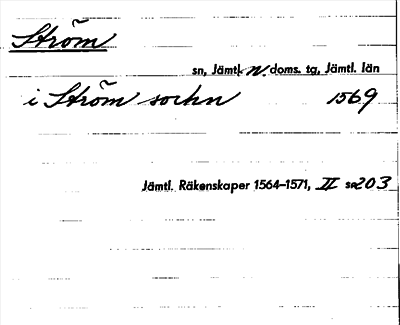 Ström
sn, Jämtl. N. doms. tg, Jämtl. län
i Ström sochn 1569
Jämtl. Räkenskaper 1564–1571, II s. 203